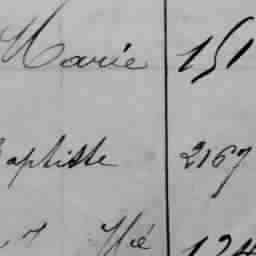 Marie 151
Baptiste 2167
124